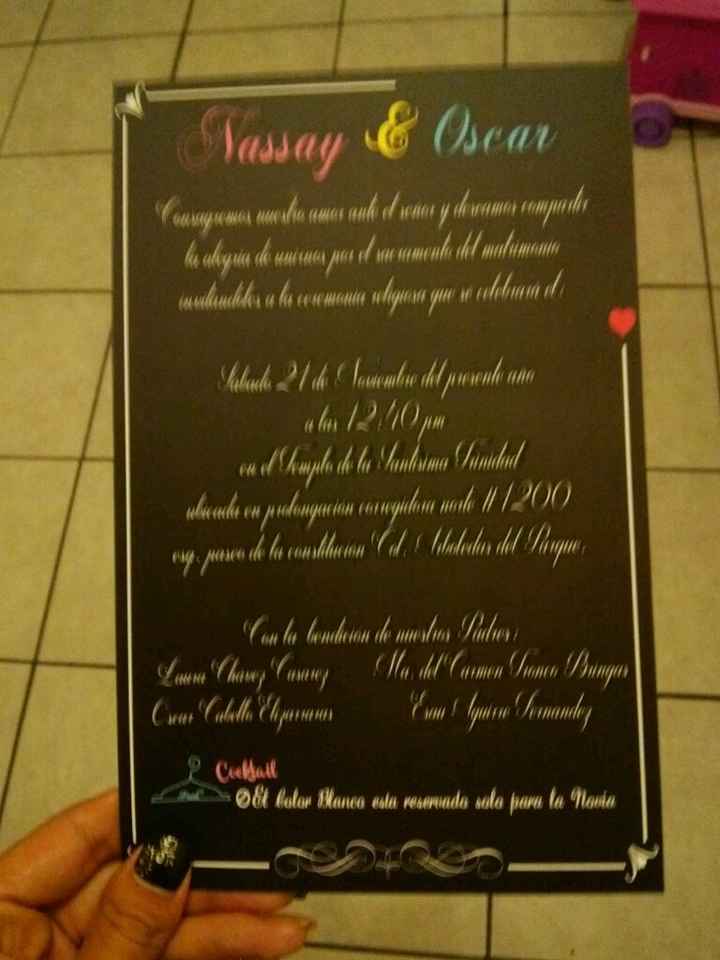 Nassay & Oscar
Consagremos nuestro amor ante el señor y deseamos compartir
la alegría de unirnos por el sacramento del matrimonio
invitandolos a la ceremonia religiosa que se celebrará el:
Sabado 21 de Noviembre del presente año
a las 12:40 pm
en el Templo de la Santisima Trinidad
ubicada en prolongación corregidora norte # 1200
esq. paseo de la constitución Col. Arboledas del Parque.
Con la bendición de nuestros Padres:
Laura Chávez Casarez Ma. del Carmen Tronco Bringas
Oscar Cabello Elizarraras Esau Aguirre Fernandez
Cocktail
El Color Blanco esta reservado solo para la Novia